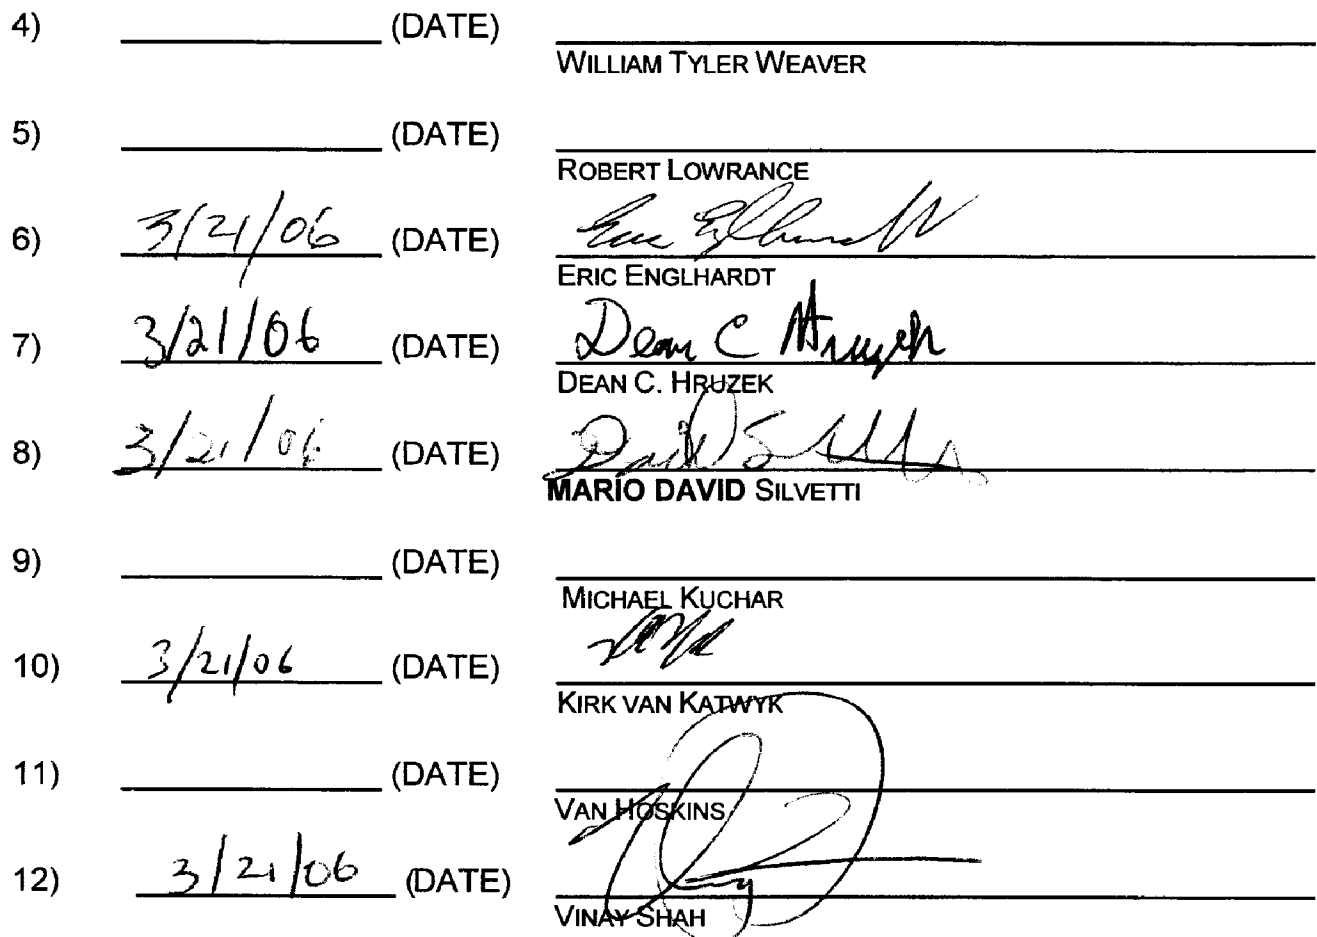 4) (DATE)
WILLIAM TYLER WEAVER
5) (DATE)
ROBERT LOWRANCE
6) 3/21/06 (DATE) Eric Englhardt
ERIC ENGLHARDT
7) 3/21/06 (DATE) Dean C Hruzek
DEAN C. HRUZEK
8) 3/21/06 (DATE) David Silvetti
MARIO DAVID SILVETTI
9) (DATE)
MICHAEL KUCHAR
10) 3/21/06 (DATE)
KIRK VAN KATWYK
11) (DATE)
VAN HOSKINS
12) 3/21/06 (DATE)
VINAY SHAH